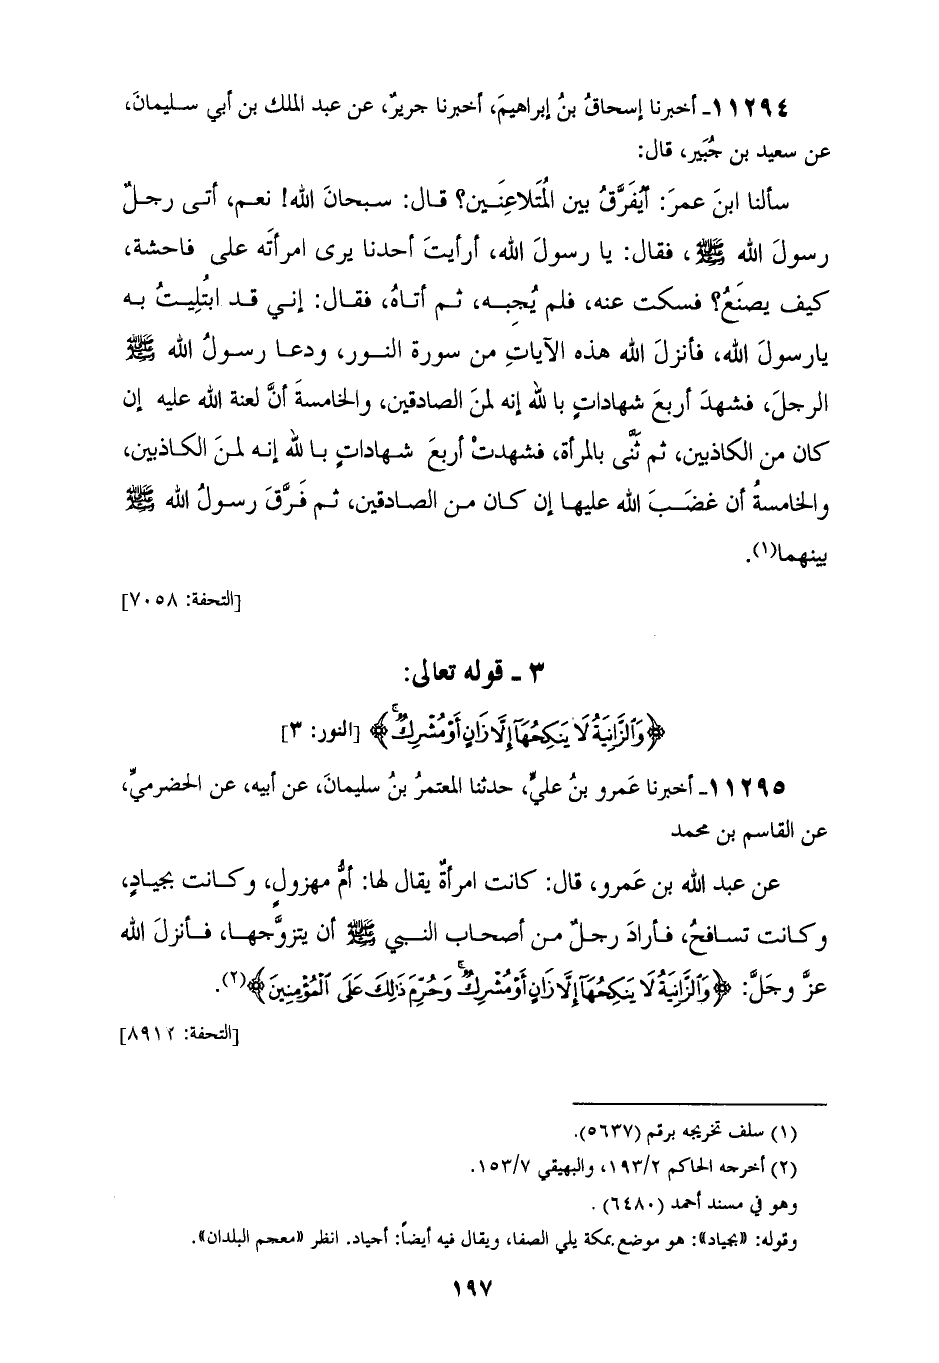 ١١٢٩٤ـ أخبرنا إسحاقُ بنُ إبراهيمَ، أخبرنا جريرٌ، عن عبد الملك بن أبي سليمانَ،
عن سعيد بن جُبَير، قال:
سألنا ابنَ عمرَ: أيُفَرَّقُ بين المُتَلاعِنَين؟ قال: سبحانَ الله! نعم، أتى رجلٌ
رسولَ الله ﷺ، فقال: يا رسولَ الله، أرأيتَ أحدنا يرى امرأتَه على فاحشة،
كيف يصنَعُ؟ فسكت عنه، فلم يُجِبه، ثم أتاهُ، فقال: إني قد ابتُلِيتُ به
يارسولَ الله، فأنزلَ الله هذه الآياتِ من سورة النور، ودعا رسولُ الله ﷺ
الرجلَ، فشهدَ أربعَ شهاداتٍ بالله إنه لمنَ الصادقين، والخامسةَ أنَّ لعنة الله عليه إن
كان من الكاذبين، ثم ثَنَّى بالمرأة، فشهدتْ أربعَ شهاداتٍ بالله إنه لمنَ الكاذبين،
والخامسةُ أن غضَبَ الله عليها إن كان من الصادقين، ثم فَرَّقَ رسولُ الله ﷺ
بينهما(١).
[التحفة: ٧٠٥٨]
٣ ـ قوله تعالى:
﴿وَٱلزَّانِيَةُ لَا يَنكِحُهَآ إِلَّا زَانٍ أَوْ مُشْرِكٌ ۚ﴾ [النور: ٣]
١١٢٩٥ـ أخبرنا عَمرو بنُ عليٍّ، حدثنا المعتمرُ بنُ سليمانَ، عن أبيه، عن الحضرميِّ،
عن القاسم بن محمد
عن عبد الله بن عَمرو، قال: كانت امرأةٌ يقال لها: أمُّ مهزولٍ، وكانت بجيادٍ،
وكانت تسافحُ، فأرادَ رجلٌ من أصحاب النبي ﷺ أن يتزوَّجها، فأنزلَ الله
عزَّ وجَلَّ: ﴿وَٱلزَّانِيَةُ لَا يَنكِحُهَآ إِلَّا زَانٍ أَوْ مُشْرِكٌ ۚ وَحُرِّمَ ذَٰلِكَ عَلَى ٱلْمُؤْمِنِينَ﴾(٢).
[التحفة: ٨٩١٢]
(١) سلف تخريجه برقم (٥٦٣٧).
(٢) أخرجه الحاكم ١٩٣/٢، والبهيقي ١٥٣/٧.
وهو في مسند أحمد (٦٤٨٠) .
وقوله: «بجياد»: هو موضع بمكة يلي الصفا، ويقال فيه أيضاً: أجياد. انظر «معجم البلدان».
١٩٧